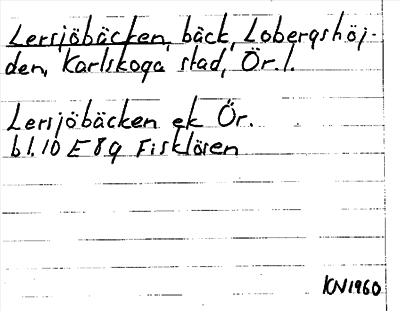 Lersjöbäcken, bäck, Lobergshöj-
den, Karlskoga stad, Ör. l.
Lersjöbäcken ek Ör.
bl. 10 E 8 g Fisklösen
KN 1960